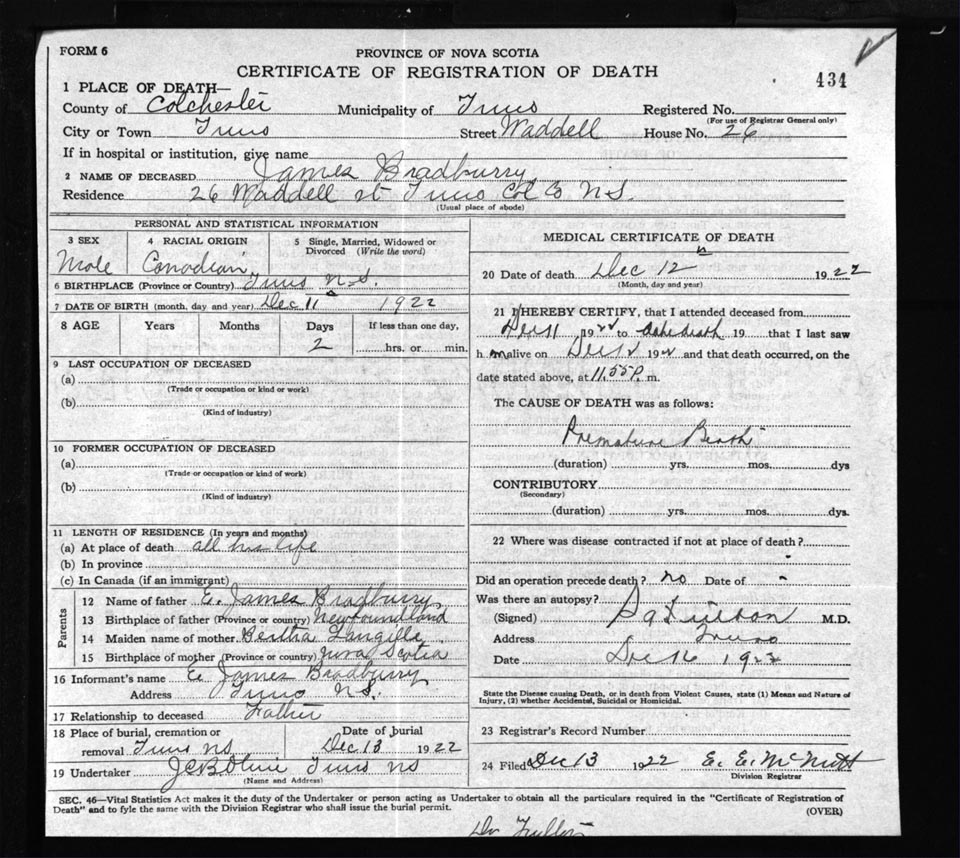 FORM 6
PROVINCE OF NOVA SCOTIA
CERTIFICATE OF REGISTRATION OF DEATH
434
1 PLACE OF DEATH—
County of Colchester Municipality of Truro Registered No.
(For use of Registrar General only)
City or Town Truro Street Waddell House No. 26
If in hospital or institution, give name
2 NAME OF DECEASED James Bradburry
Residence 26 Waddell st Truro Col Co N.S.
(Usual place of abode)
PERSONAL AND STATISTICAL INFORMATION
3 SEX 4 RACIAL ORIGIN 5 Single, Married, Widowed or Divorced (Write the word)
Male Canadian
6 BIRTHPLACE (Province or Country) Truro N.S.
7 DATE OF BIRTH (month, day and year) Dec 11 1922
8 AGE Years Months Days If less than one day,
2 hrs. or min.
9 LAST OCCUPATION OF DECEASED
(a)
(Trade or occupation or kind or work)
(b)
(Kind of industry)
10 FORMER OCCUPATION OF DECEASED
(a)
(Trade or occupation or kind of work)
(b)
(Kind of industry)
11 LENGTH OF RESIDENCE (In years and months)
(a) At place of death all his life
(b) In province
(c) In Canada (if an immigrant)
Parents
12 Name of father E. James Bradburry
13 Birthplace of father (Province or country) Newfoundland
14 Maiden name of mother Bertha Langille
15 Birthplace of mother (Province or country) Nova Scotia
16 Informant's name E. James Bradburry
Address Truro N.S.
17 Relationship to deceased Father
18 Place of burial, cremation or removal Truro NS
Date of burial
Dec 13 1922
19 Undertaker Truro NS
(Name and Address)
MEDICAL CERTIFICATE OF DEATH
20 Date of death Dec 12 1922
(Month, day and year)
21 I HEREBY CERTIFY, that I attended deceased from
Dec 11 1922 to date death 19 that I last saw
h m alive on Dec 12 1922 and that death occurred, on the
date stated above, at 11.55 P. m.
The CAUSE OF DEATH was as follows:
Premature Birth
(duration) yrs. mos. dys
CONTRIBUTORY
(Secondary)
(duration) yrs. mos. dys.
22 Where was disease contracted if not at place of death?
Did an operation precede death? no Date of -
Was there an autopsy?
(Signed) M.D.
Address Truro
Date Dec 16 1922
State the Disease causing Death, or in death from Violent Causes, state (1) Means and Nature of
Injury, (2) whether Accidental, Suicidal or Homicidal.
23 Registrar's Record Number
24 Filed Dec 13 1922 E. E. McNutt
Division Registrar
SEC. 46—Vital Statistics Act makes it the duty of the Undertaker or person acting as Undertaker to obtain all the particulars required in the "Certificate of Registration of
Death" and to fyle the same with the Division Registrar who shall issue the burial permit. (OVER)